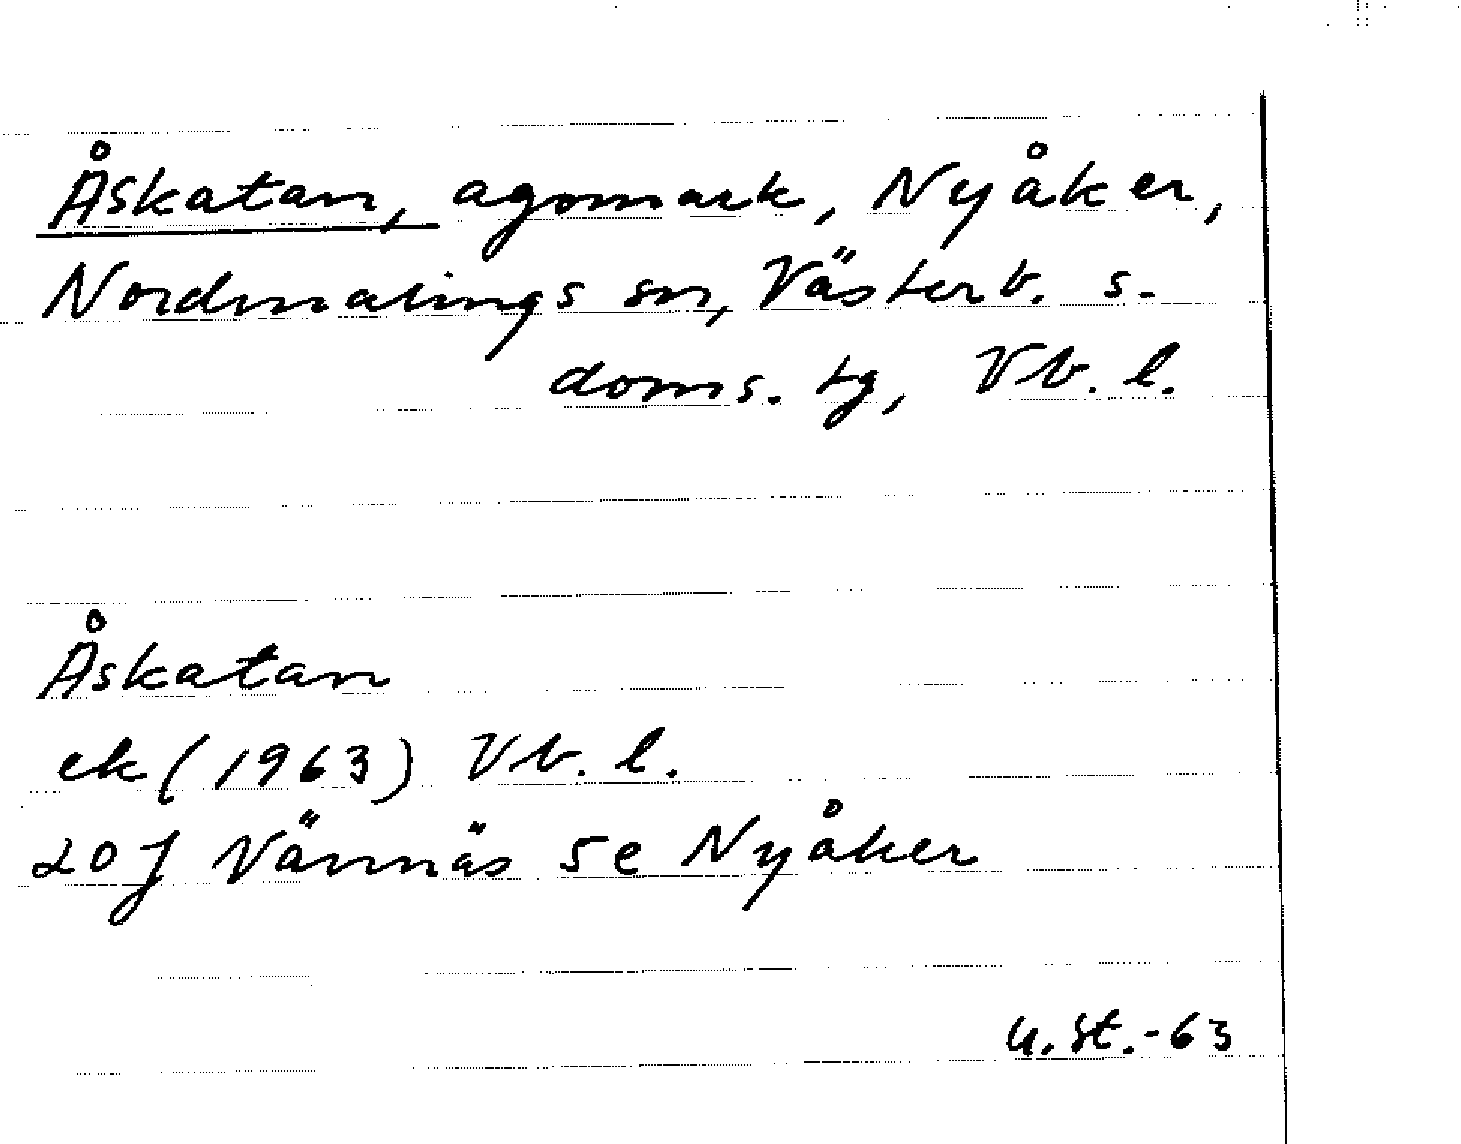 Åskatan, ägomark, Nyåker,
Nordmalings sn, Västerb. s.
doms. tg, Vb. l.
Åskatan
ek (1963) Vb. l.
20 J Vännäs 5e Nyåker
U. St.-63